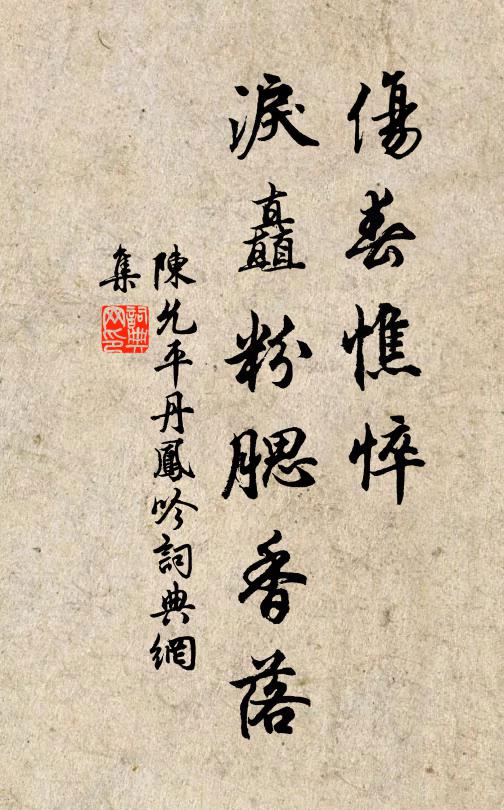 傷春憔悴
淚矗粉腮香落
陳允平丹鳳吟詞典網
集
詞典
网印